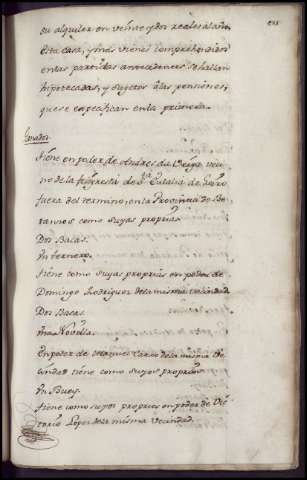 su alquiler en veinte y dos reales al año
Esta casa, y más vienes comprehendidos
en las partidas antecedentes, se hallan
hipotecadas, y sujetos a las pensiones
que se espezifican en la primera.
Ganados
Tiene en poder de Andres da Veiga veci
no de la feligresia de Sta Eulalia de
fuera del termino, en la Provincia de Be
tanzos como suyas proprias.
Dos Bacas.
Un ternero.
tiene como suyas proprias en poder de
Domingo Rodriguez de la misma vecindad
Dos Bacas.
Una Novilla.
En poder de de la misma Ve
cindad tiene como suyos proprios
Un Buey.
tiene como suyos proprios en poder de Vic
torio Lopez de la misma Vecindad.